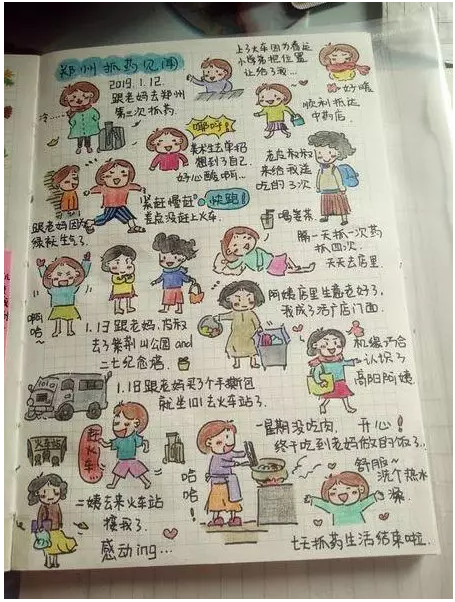 郑州抓药见闻
2019.1.12
跟老妈去郑州
第二次抓药
上了火车因为春运
小学弟把位置
让给了我…
好暖
冷……
顺利抵达
中药店.
哪吁!
美术生去单招
想到了自己.
好心酸啊…
叔叔
来给我送
吃的了2次
紧赶慢赶
差点没赶上火车.
快跑!
跟老妈因为
绿袄生气了
喝羊菜
隔一天抓一次药
抓四次.
天天去店里.
啊
哈
阿姨店里生意老好了,
我成了活广店门面.
1.13跟老妈
去了紫荆山公园and
二七纪念塔
机缘巧合
认识了
高阳阿姨
1.18跟老妈买了个手撕包
就坐101去火车站了.
火车站
赶
火
车…
一星期没吃肉,
开心!
终于吃到老妈做的饭了..
哈
哈
!
舒服~
洗个热水
澡.
二姨去来火车站
接我了.
感动ing…
七天抓药生活结束啦.